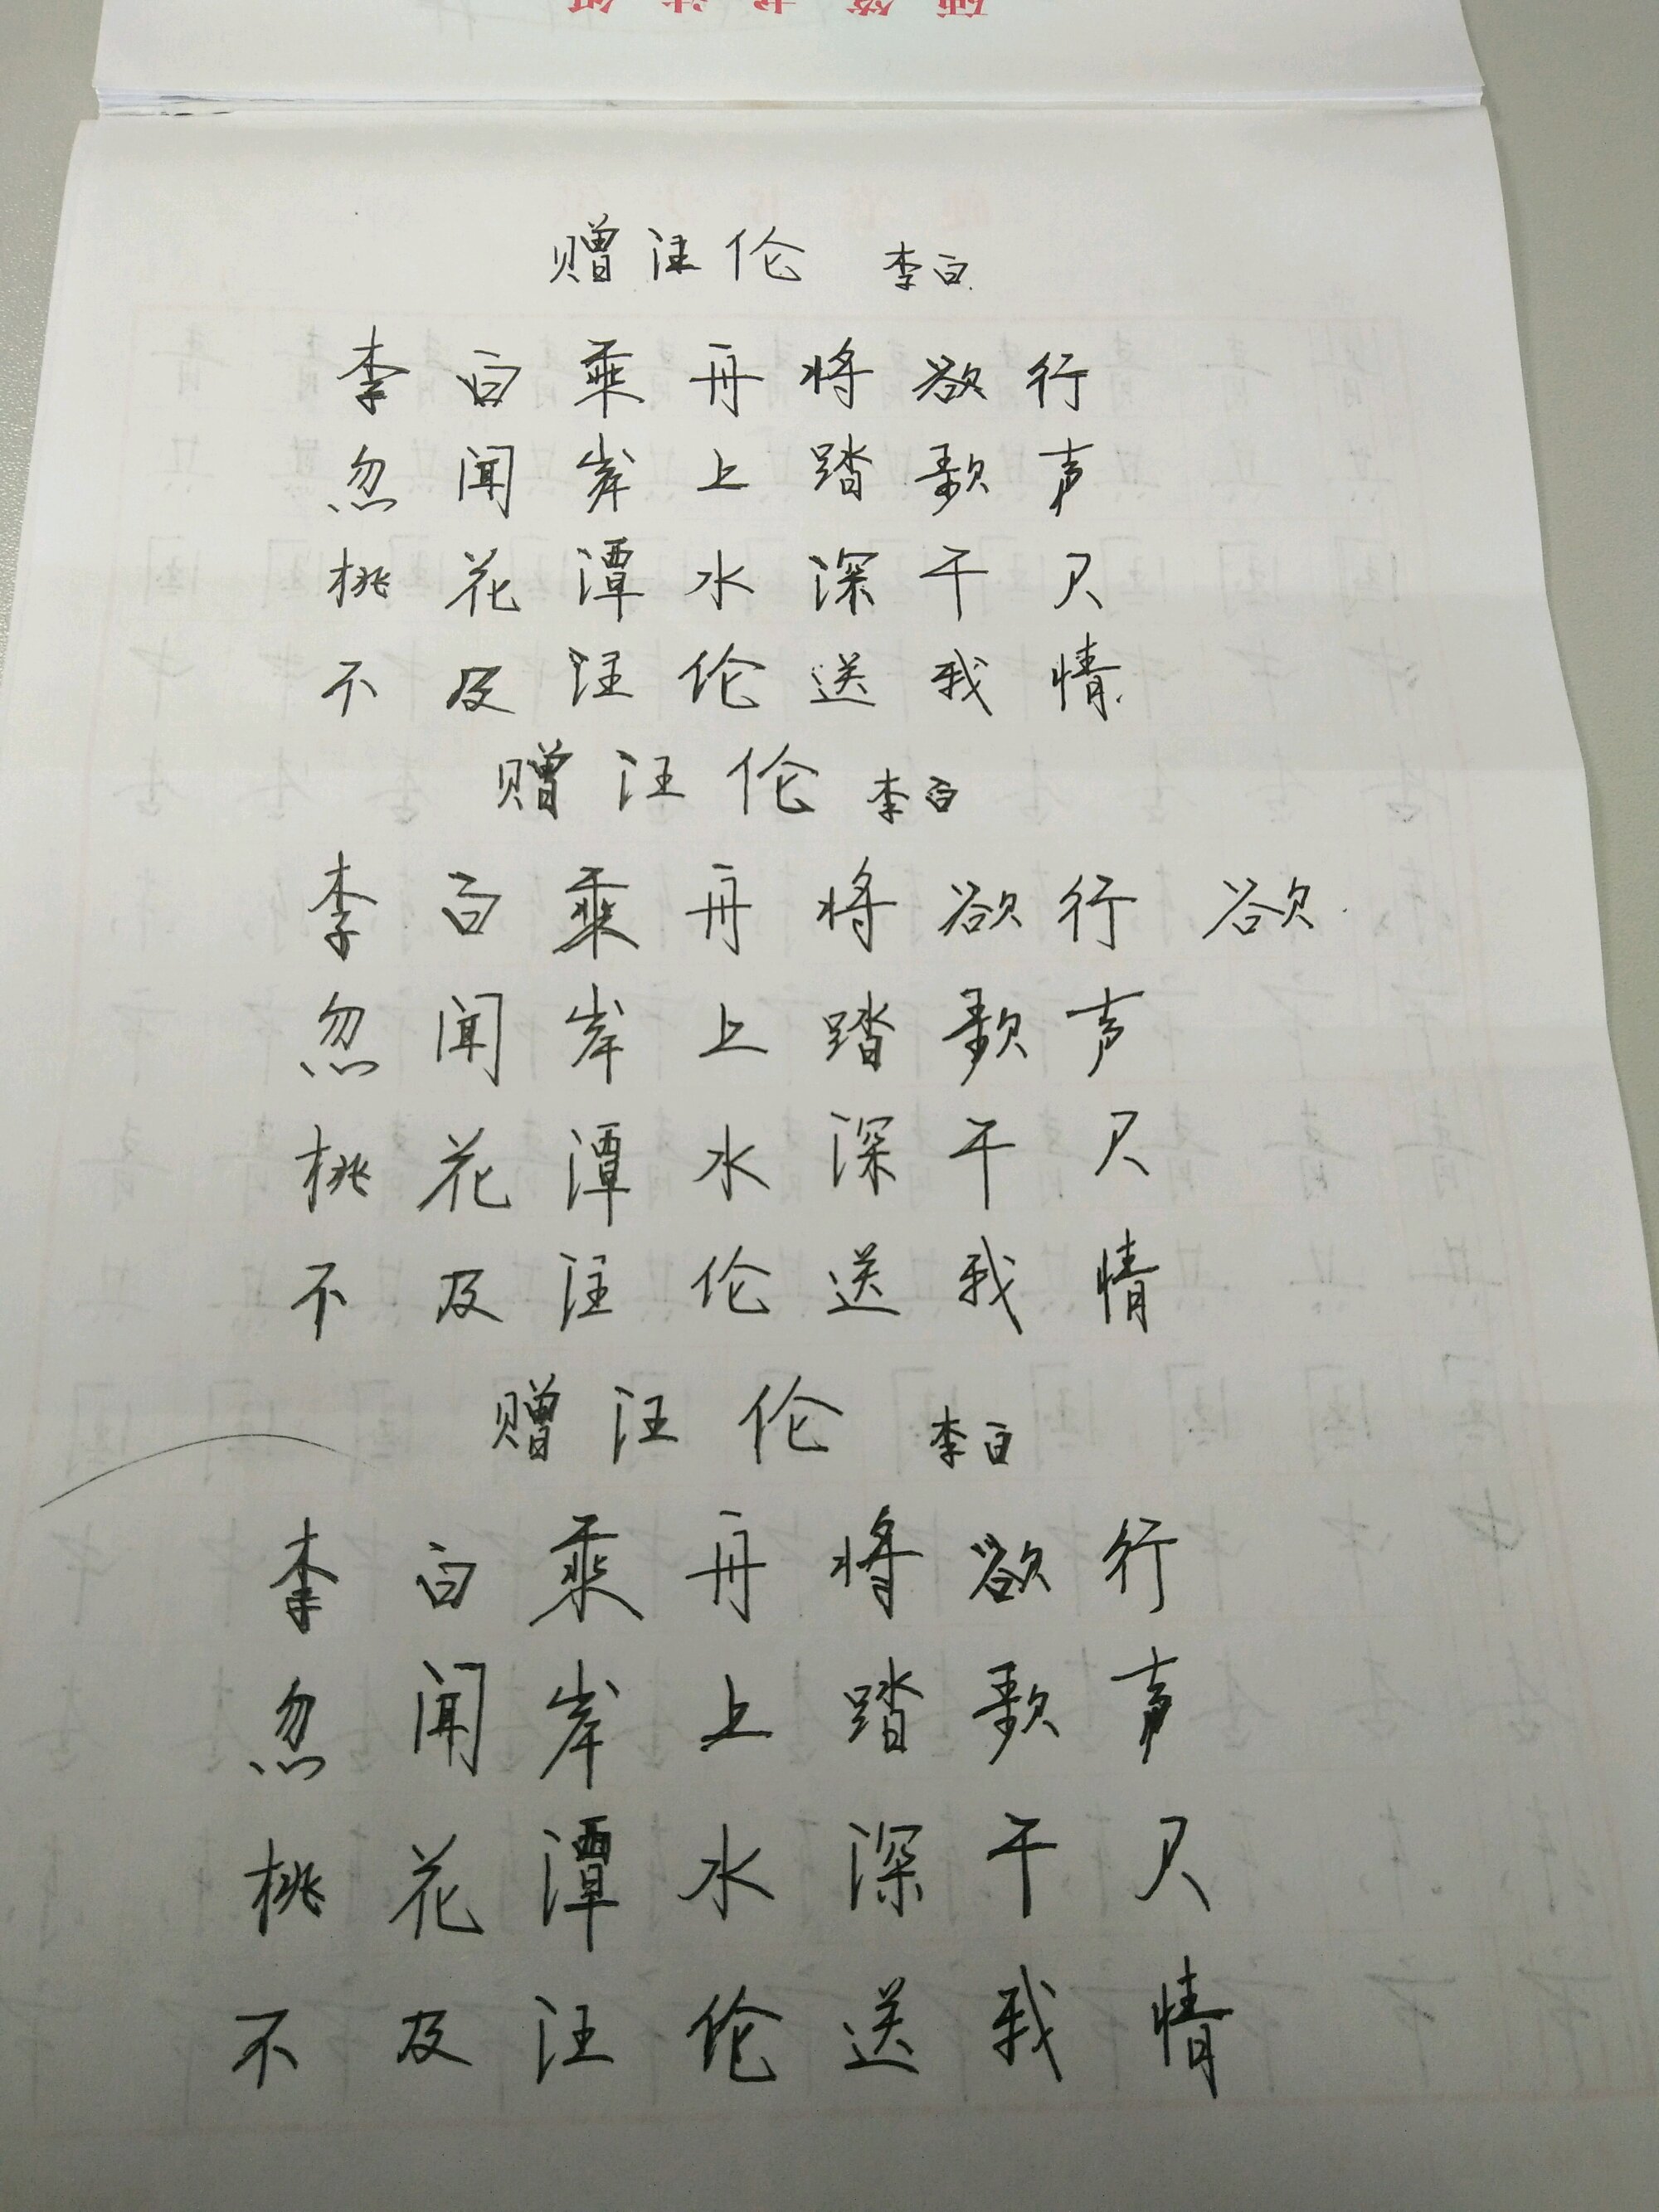 赠汪伦 李白
李白乘舟将欲行
忽闻岸上踏歌声
桃花潭水深千尺
不及汪伦送我情
赠汪伦 李白
李白乘舟将欲行 欲
忽闻岸上踏歌声
桃花潭水深千尺
不及汪伦送我情
赠汪伦 李白
李白乘舟将欲行
忽闻岸上踏歌声
桃花潭水深千尺
不及汪伦送我情